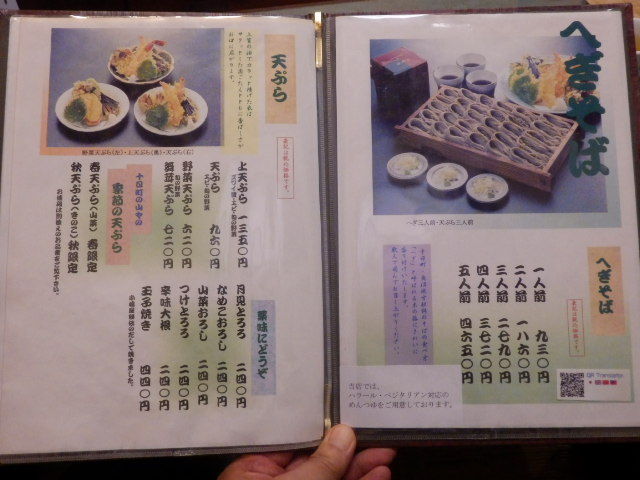 へぎそば
へぎ三人前・天ぷら三人前
へぎそば
表記は税込価格です。
一人前 九三〇円
二人前 一八六〇円
三人前 二七九〇円
四人前 三七二〇円
五人前 四六五〇円
QR Translator
当店では、
ハラール・ベジタリアン対応の
めんつゆをご用意しております。
天ぷら
野菜天ぷら(左)・上天ぷら(奥)・天ぷら(右)
表記は税込価格です。
上天ぷら 一三五〇円
天ぷら 九六〇円
野菜天ぷら 六二〇円
舞茸天ぷら 七二〇円
十日町の山々の
季節の天ぷら
春天ぷら(山菜) 春限定
秋天ぷら(きのこ) 秋限定
薬味にどうぞ
月見とろろ 二四〇円
なめこおろし 二四〇円
山菜おろし 二四〇円
つけとろろ 二四〇円
辛味大根 二四〇円
玉子焼き 四四〇円